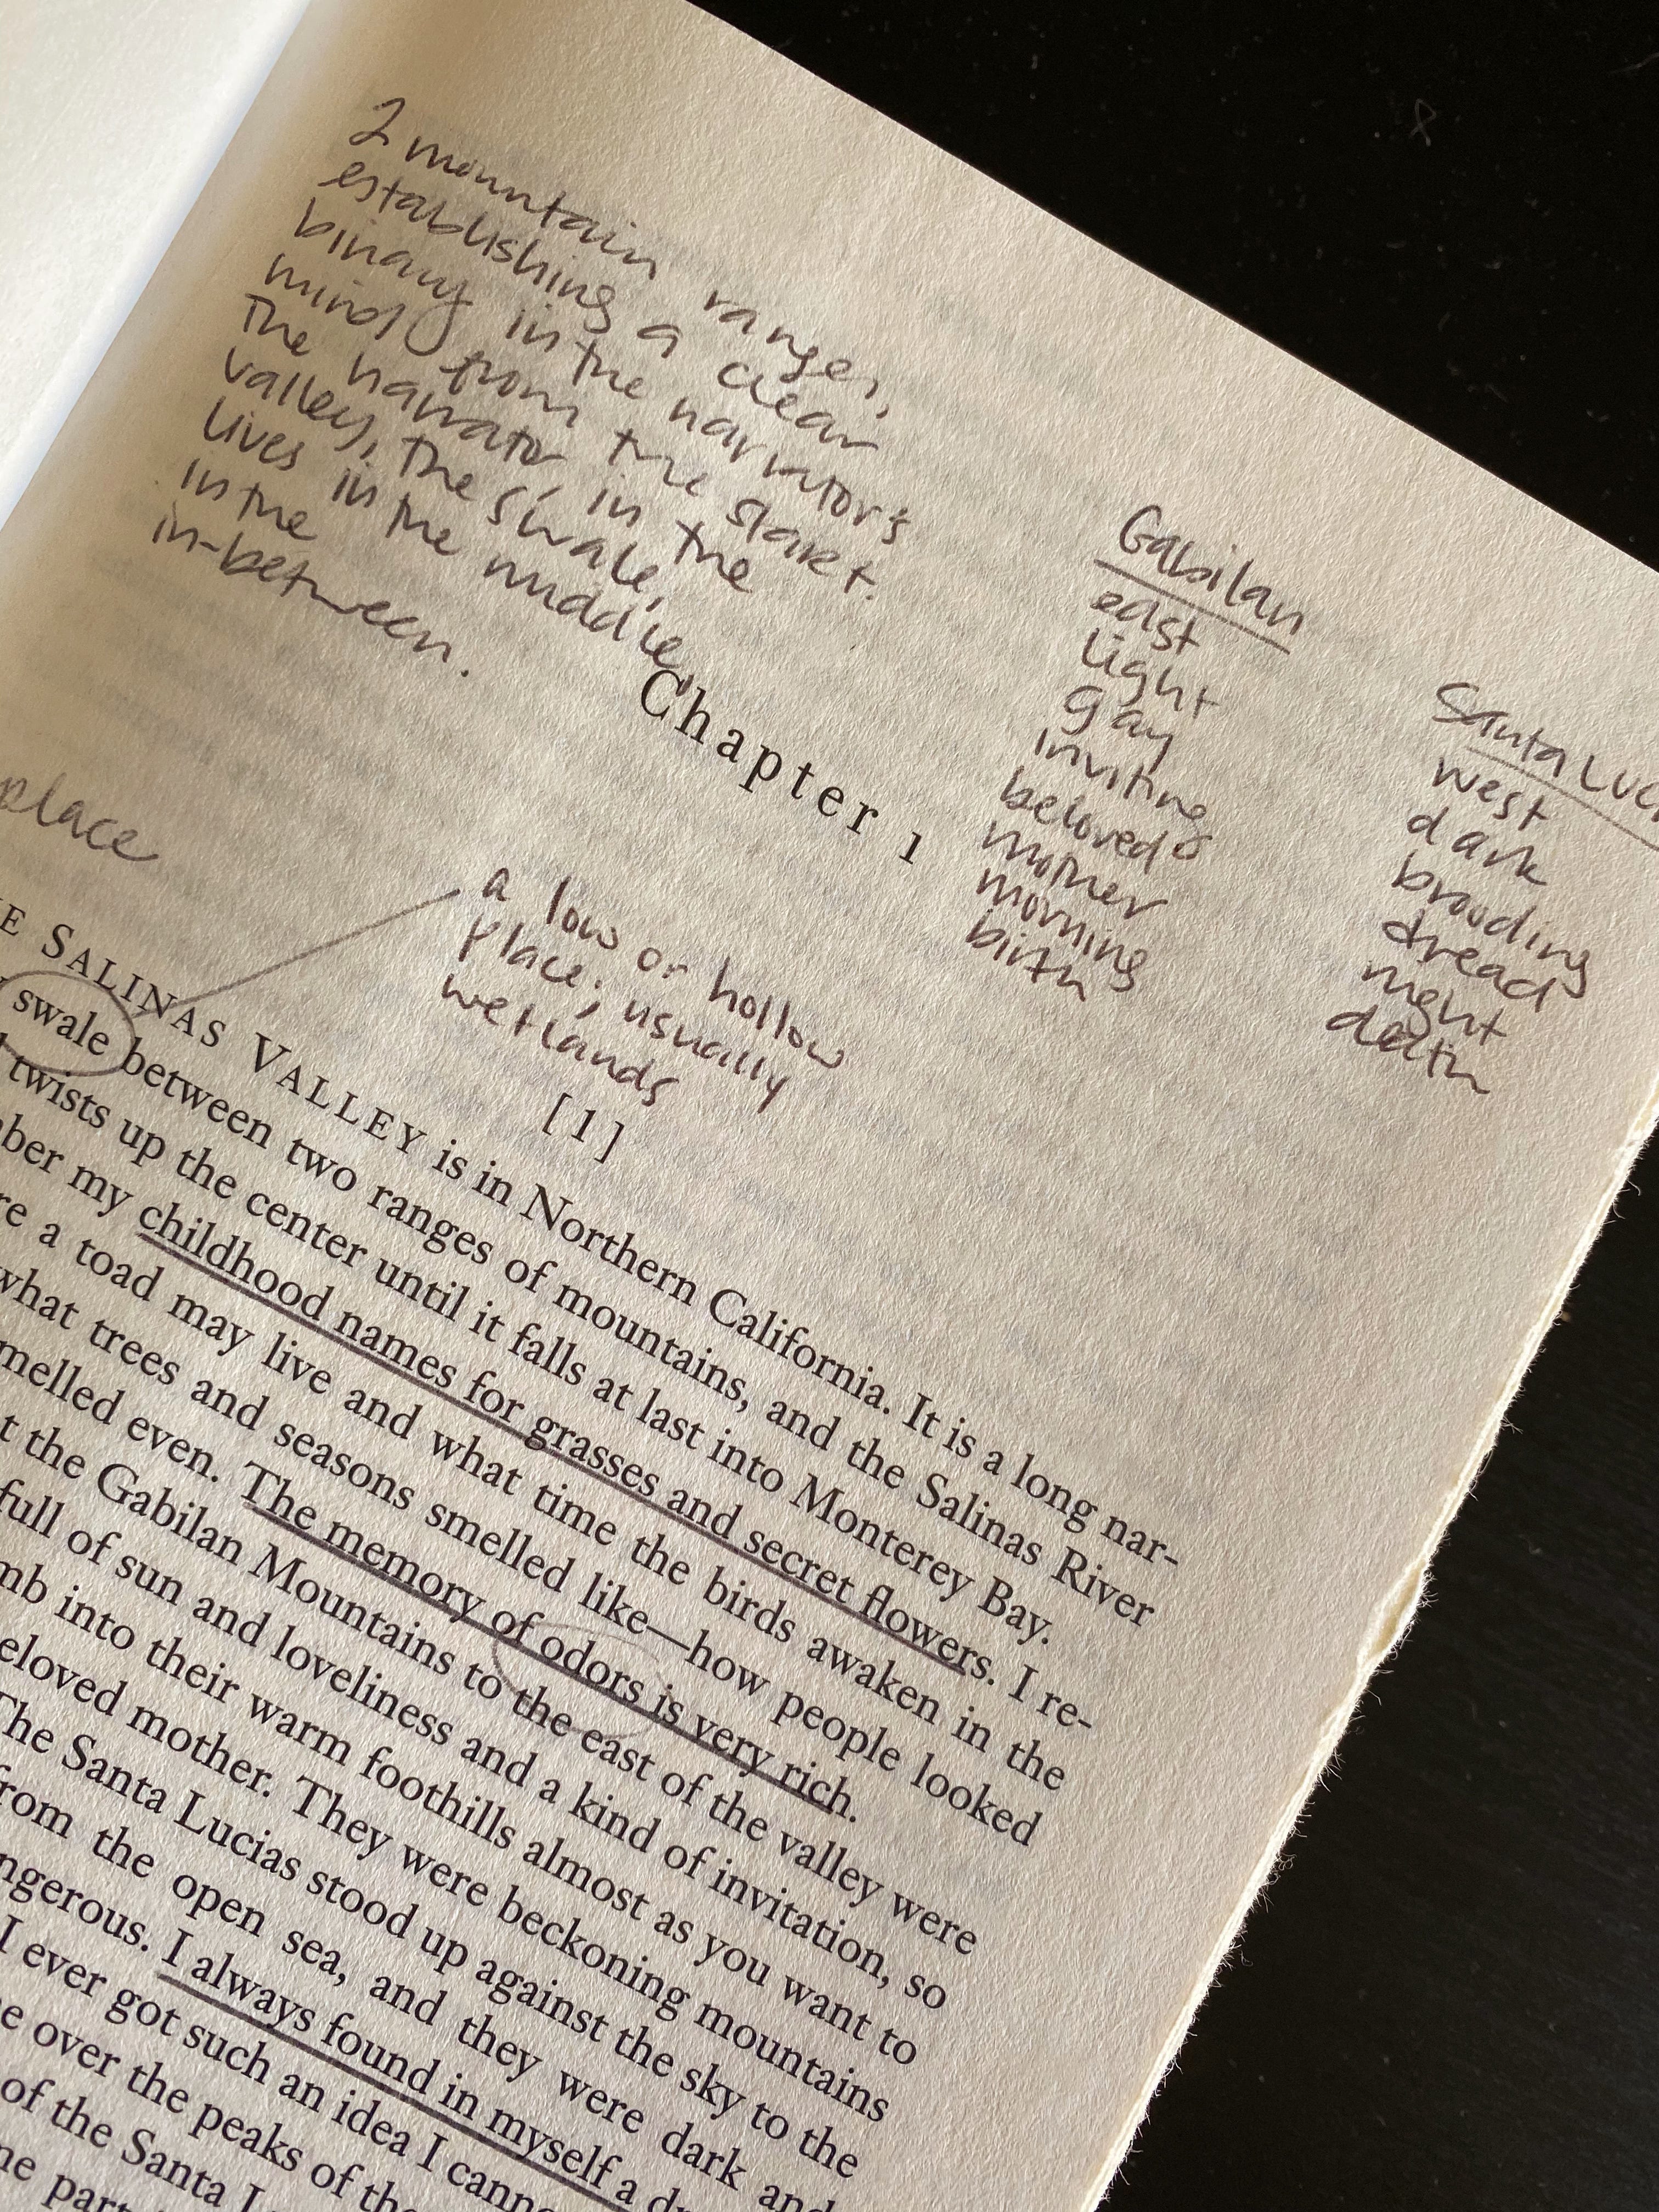 2 mountain ranges,
establishing a clear
binary in the narrator's
mind from the start.
The narrator, in the
valley, the swale,
lives in the middle,
in the
in-between.
Gabilan
east
light
gay
inviting
beloved
mother
morning
birth
Santa Luci
west
dark
brooding
dread
night
death
Chapter 1
place
a low or hollow
place; usually
wetlands
[1]
E SALINAS VALLEY is in Northern California. It is a long nar-
swale between two ranges of mountains, and the Salinas River
twists up the center until it falls at last into Monterey Bay.
ber my childhood names for grasses and secret flowers. I re-
re a toad may live and what time the birds awaken in the
what trees and seasons smelled like—how people looked
melled even. The memory of odors is very rich.
t the Gabilan Mountains to the east of the valley were
full of sun and loveliness and a kind of invitation, so
mb into their warm foothills almost as you want to
eloved mother. They were beckoning mountains
The Santa Lucias stood up against the sky to the
from the open sea, and they were dark and
ngerous. I always found in myself a dr
I ever got such an idea I cann
e over the peaks of the
of the Santa L
he part